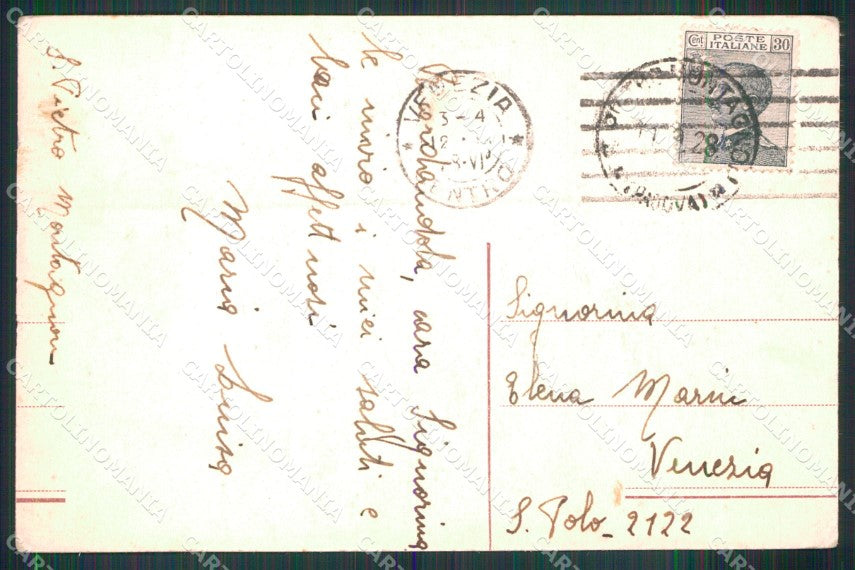 S. Pietro Montagnon
Ricordandola, cara Signorina
le invio i miei saluti e
baci affettuosi
Maria Luisa
VENEZIA
3-4
CENTRO
POSTE
ITALIANE
Cent. 30
MONTAGNON
28
(PADOVA)
Signorina
Elena Marini
Venezia
S. Polo - 2122
CARTOLINOMANIA